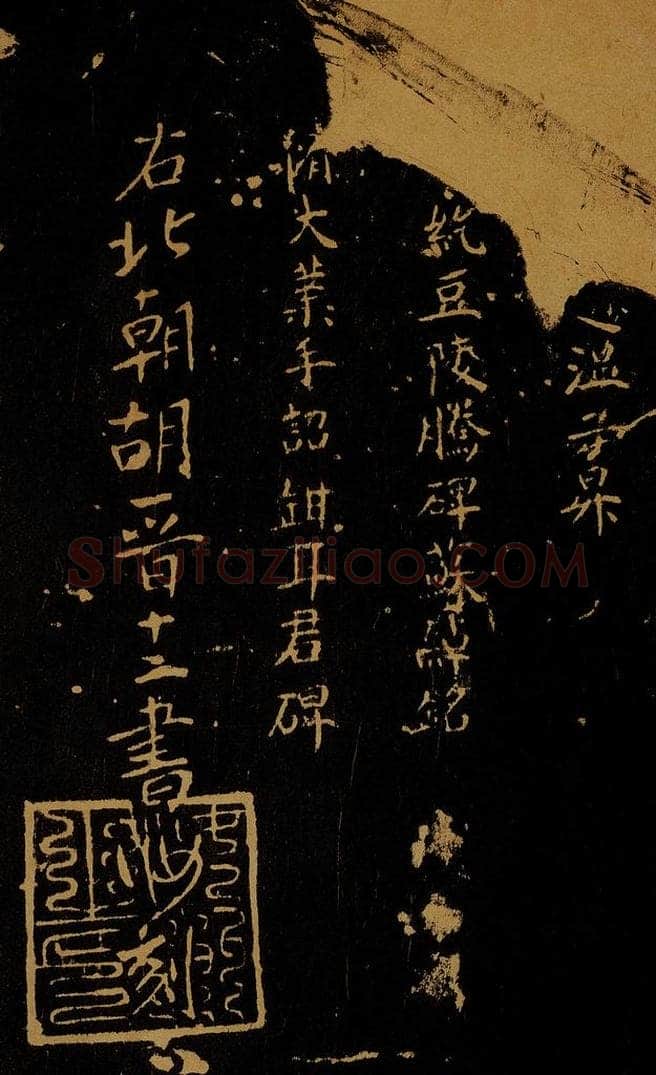 温子昇
紇豆陵騰碑蘇銘
隋大業手詔鉗耳君碑
右北朝胡晉十二書刻
Shufaziliao.COM